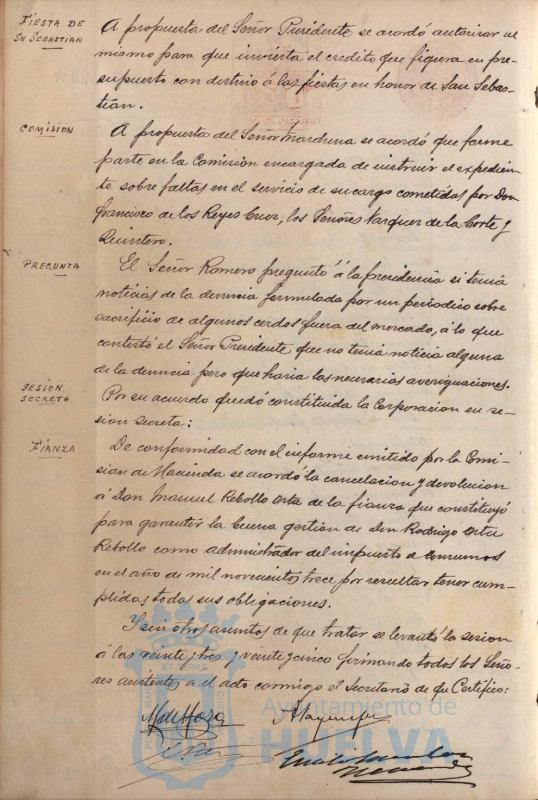 FIESTA DE
SN SEBASTIAN
A propuesta del Señor Presidente se acordó autorizar al
mismo para que invierta el credito que figura en pre-
supuesto con destino á las fiestas en honor de San Sebas-
tián.
COMISION
A propuesta del Señor Marchena se acordó que forme
parte en la Comision encargada de instruir el expedien-
te sobre faltas en el servicio de su cargo cometidas por Don
Francisco de los Reyes Cruz, los Señores Vazquez de la Corte y
Quintero.
PREGUNTA
El Señor Romero preguntó á la presidencia si tenia
noticias de la denuncia formulada por un periodico sobre
sacrificio de algunos cerdos fuera del mercado, á lo que
contestó el Señor Presidente que no tenia noticia alguna
de la denuncia pero que haria las necesarias averiguaciones.
SESION
SECRETA
Por su acuerdo quedó constituida la Corporacion en se-
sion secreta:
FIANZA
De conformidad con el informe emitido por la Comi-
sión de Hacienda se acordó la cancelacion y devolucion
á Don Manuel Rebollo Orta de la fianza que constituyó
para garantir la buena gestión de Don Rodrigo Orta
Rebollo como administrador del impuesto de consumos
en el año de mil novecientos trece por resultar tener cum-
plidas todas sus obligaciones.
Y sin otros asuntos de que tratar se levantó la sesion
á las veinte y tres y veinte y cinco firmando todos los Seño-
res asistentes a el acto conmigo el Secretario de que Certifico:
Ayuntamiento de
HUELVA